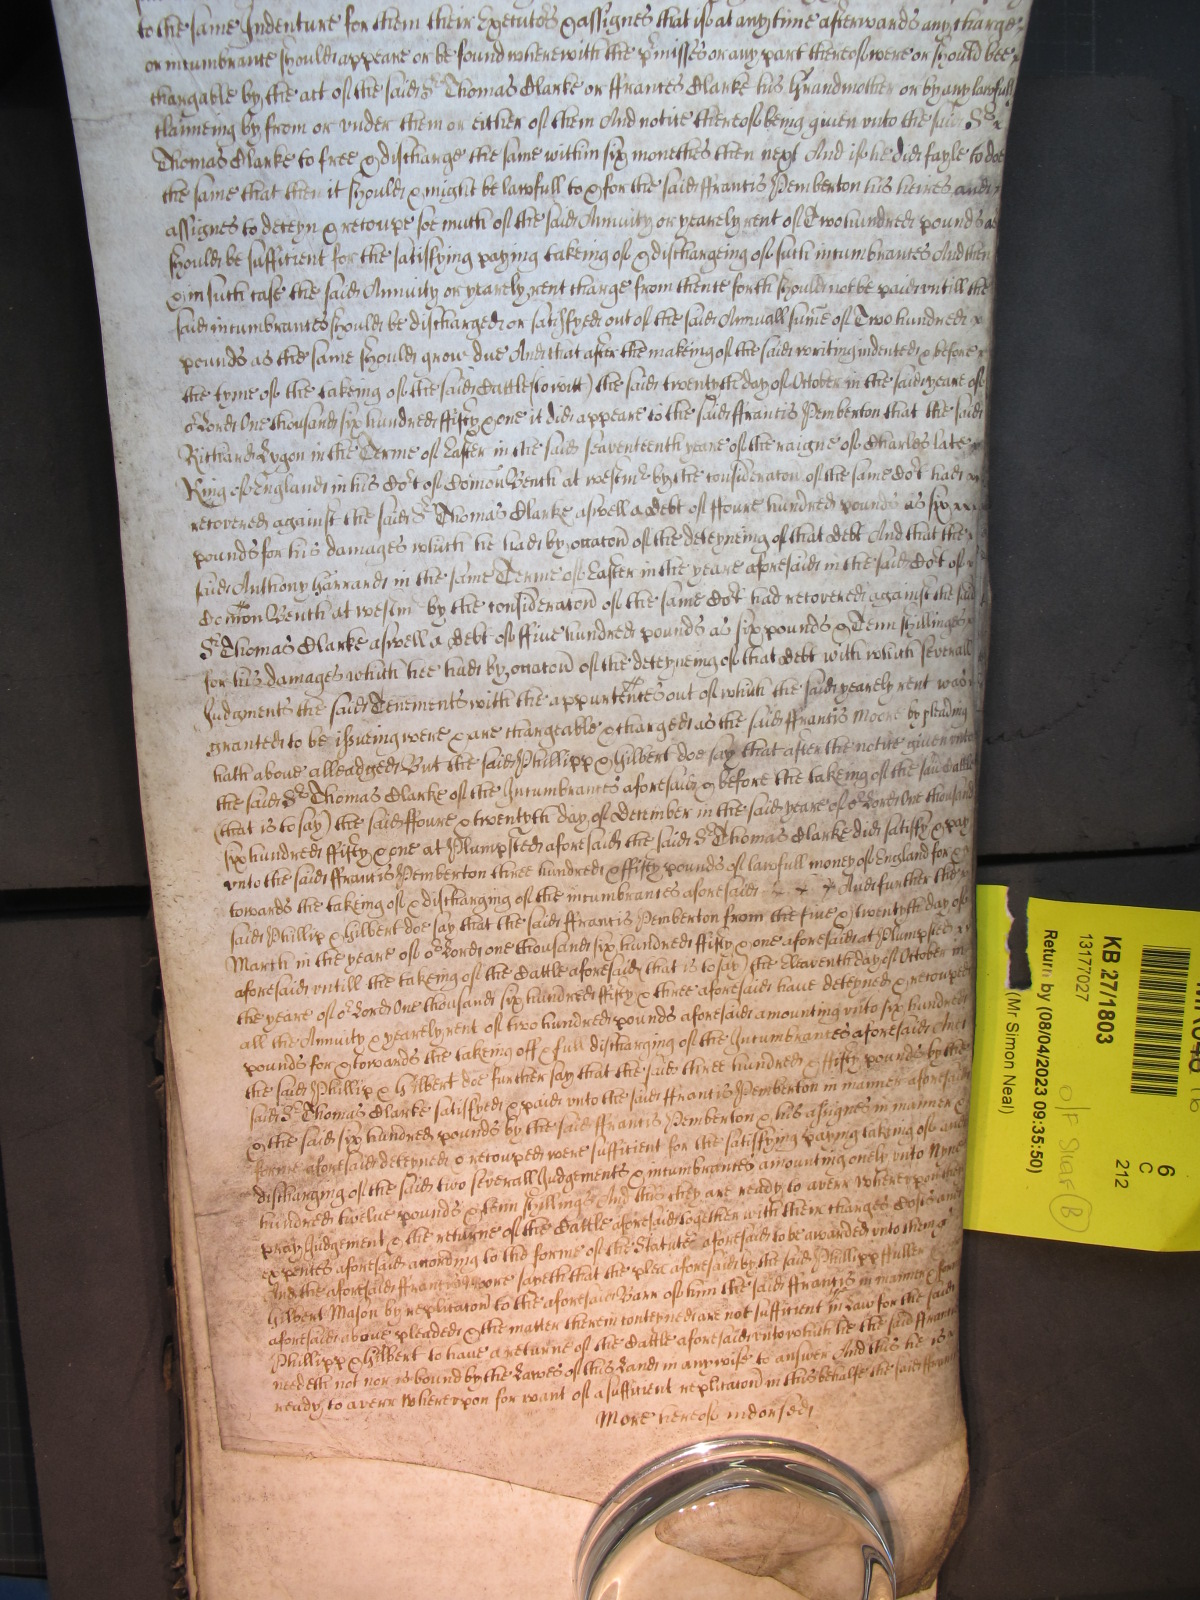 to the same Indenture for them their Executors & assignes that if at any time afterwards any charge
or incumbrance should appeare or be found wherewith the p'misses or any part thereof were or should bee
chargable by the act of the said Sr Thomas Clarke or ffrances Clarke his Grandmother or by any lawfull
claimeing by from or vnder them or either of them And notice thereof being giuen vnto the said Sr
Thomas Clarke to free & discharge the same within six monethes then next And if he did fayle to doe
the same that then it should & might be lawfull to & for the said ffrancis Pemberton his heires and
assignes to deteyn & recoupe soe much of the said Annuity or yearely rent of Two hundred pounds as
should be sufficient for the satisfying paying takeing of & dischargeing of such incumbrances And then
& in such case the said Annuity or yearely rent charge from thence forth should not be paid vntill the
said incumbrances should be discharged or satisfyed out of the said Annuall sume of Two hundred
pounds as the same should grow due And that after the makeing of the said writing indented & before
the tyme of the takeing of the said Cattle (to witt) the said twentyth day of October in the said yeare of
or Lord One thousand six hundred ffifty & one it did appeare to the said ffrancis Pemberton that the said
Richard Lygon in the Terme of Easter in the said seaventeenth yeare of the raigne of Charles late
King of England in his Cort of Comon Bench at westmr by the consideracon of the same Cort had
recovered against the said Sr Thomas Clarke aswell a debt of ffoure hundred pounds as six
pounds for his damages which he had by occacon of the deteyneing of that debt And that the
said Anthony Garrard in the same Terme of Easter in the yeare aforesaid in the said Cort of
Comon Bench at westm by the consideracon of the same Cort had recovered against the said
Sr Thomas Clarke aswell a debt of ffive hundred pounds as six pounds & Tenn shillinges
for his damages which hee had by occacon of the deteyneing of that debt with which severall
Judgments the said Tenements with the appurtences out of which the said yearely rent was
granted to be issueing were & are chargeable & charged as the said ffrancis Moore by pleading
hath above alleadged But the said Phillipp & Gilbert doe say that after the notice giuen vnto
the said Sr Thomas Clarke of the Incumbrances aforesaid & before the takeing of the said Cattle
(that is to say) the said ffoure & twentyth day of December in the said yeare of or Lord One thousand
six hundred ffifty & one at Plumpsted aforesaid the said Sr Thomas Clarke did satisfy & pay
vnto the said ffrancis Pemberton three hundred & ffifty pounds of lawfull money of England for &
towards the takeing of & discharging of the incumbrances aforesaid And further the
said Phillip & Gilbert doe say that the said ffrancis Pemberton from the five & twentyth day of
March in the yeare of or Lord one thousand six hundred ffifty & one aforesaid at Plumpsted
aforesaid vntill the takeing of the Cattle aforesaid (that is to say) the Eleaventh day of October in
the yeare of or Lord One thousand six hundred ffifty & three aforesaid have deteyned & recouped
all the Annuity & yearely rent of two hundred pounds aforesaid amounting vnto six hundred
pounds for & towards the takeing off & full discharging of the Incumbrances aforesaid And
the said Phillip & Gilbert doe further say that the said three hundred & ffifty pounds by the
said Sr Thomas Clarke satisfyed & paid vnto the said ffrancis Pemberton in manner aforesaid
& the said six hundred pounds by the said ffrancis Pemberton & his assignes in manner &
forme aforesaid deteyned & recouped were sufficient for the satisfying paying takeing of and
discharging of the said two severall Judgements & incumbrances amounting onely vnto Nyne
hundred twelve pounds & Tenn shillings And this they are ready to averr Wherevpon they
pray Judgement & the returne of the Cattle aforesaid together with their charges Costs and
expences aforesaid according to the forme of the Statute aforesaid to be awarded vnto them &c
And the aforesaid ffrancis Moore sayeth that the plea aforesaid by the said Phillipp ffuller
Gilbert Mason by replicacon to the aforesaid Barr of him the said ffrancis in manner & forme
aforesaid above pleaded & the matter therein conteyned are not sufficient in Law for the said
Phillipp & Gilbert to have a returne of the Cattle aforesaid vnto which he the said ffrancis
needeth not nor is bound by the Lawes of this Land in any wise to answer And this he is
ready to averr Wherevpon for want of a sufficient replicacon in this behalfe the said ffrancis
More hereof indorsed
KB 27/1803
13177027
Return by (08/04/2023 09:35:50)
(Mr Simon Neal)
6
C
212
O/F Shelf B